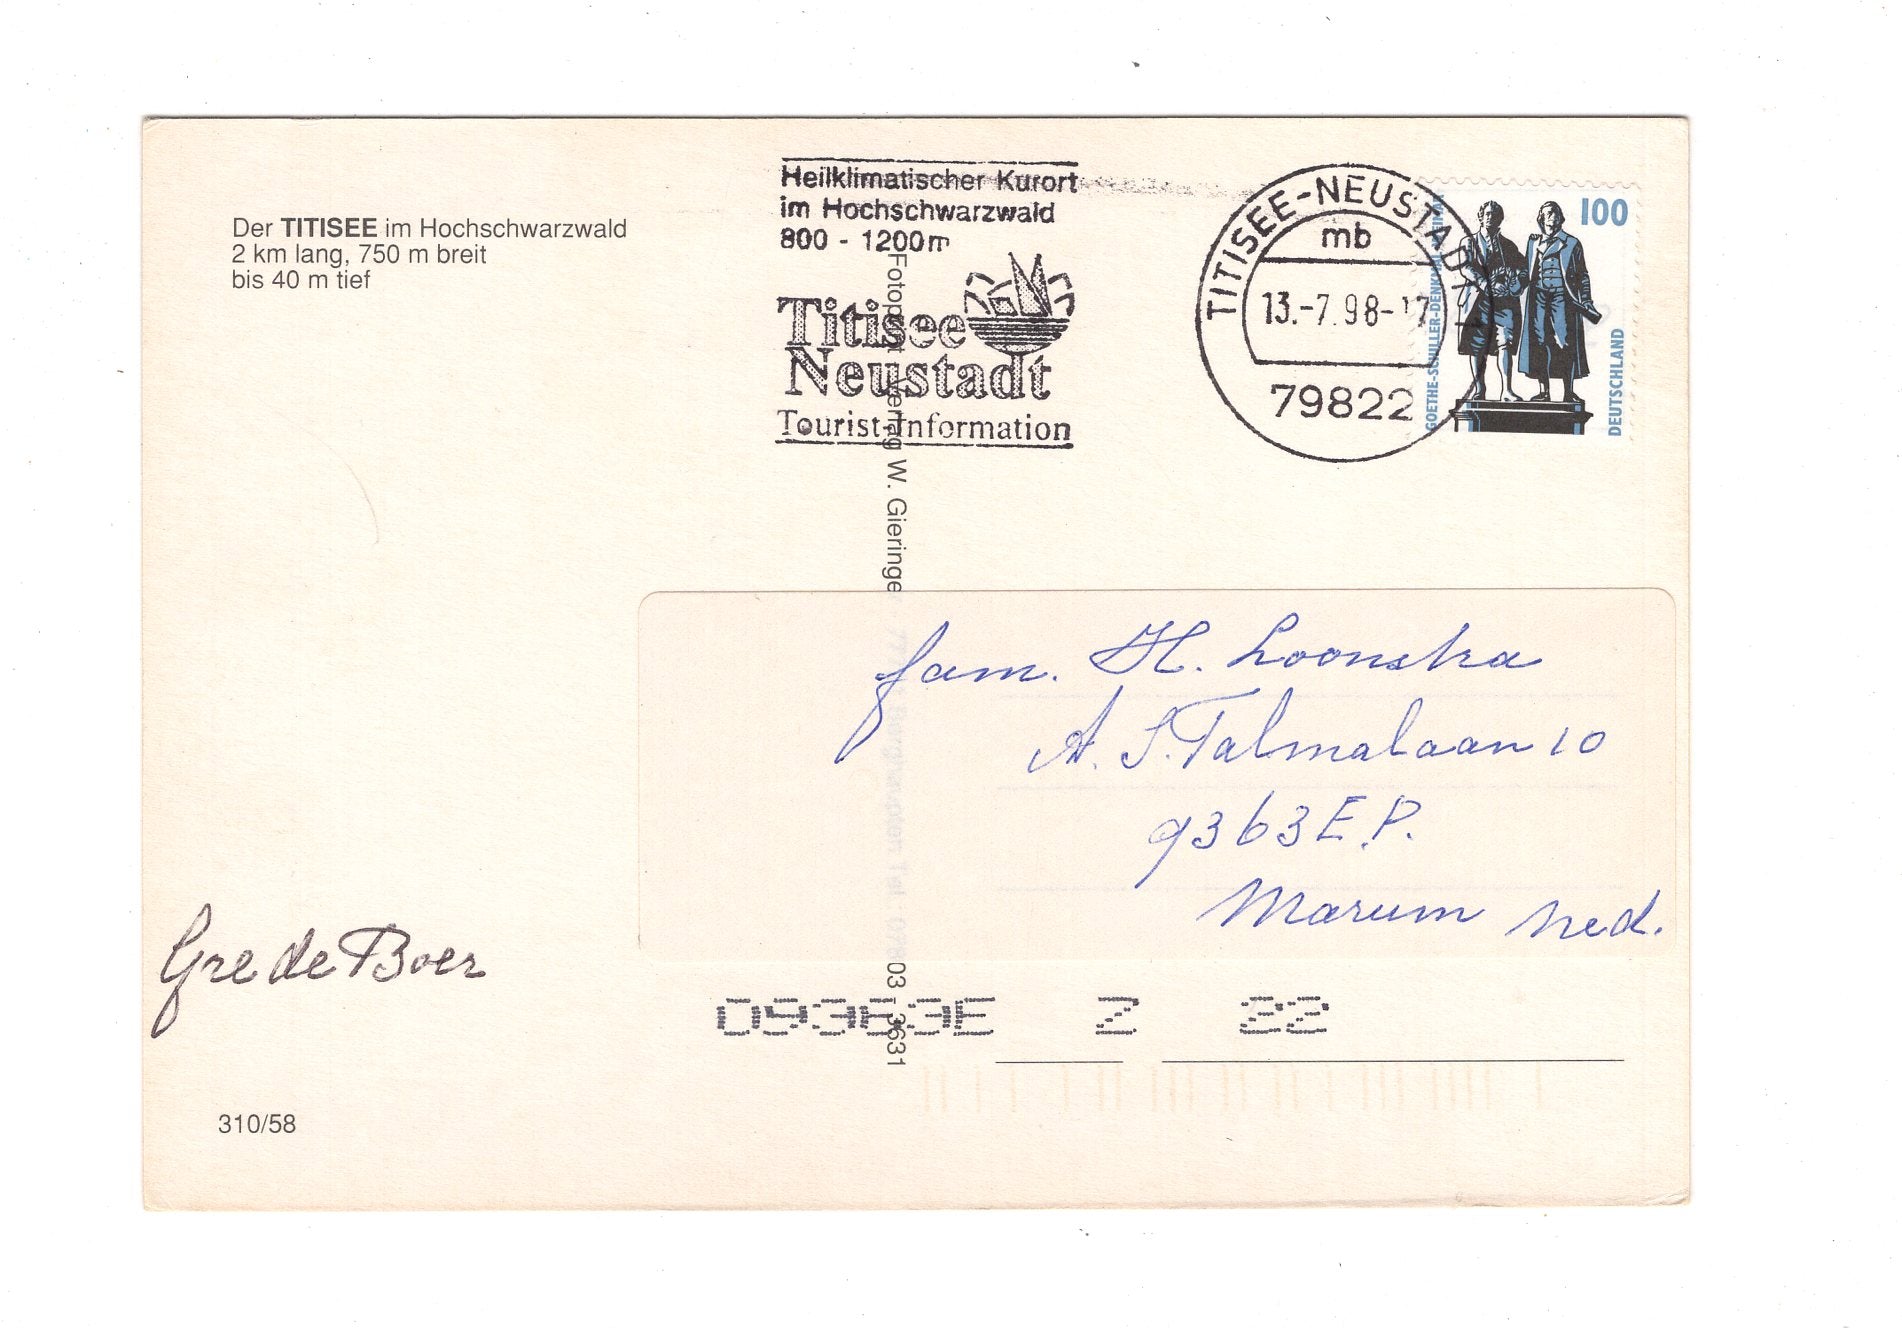 Der TITISEE im Hochschwarzwald
2 km lang, 750 m breit
bis 40 m tief
Heilklimatischer Kurort
im Hochschwarzwald
800 - 1200m
Titisee
Neustadt
Tourist-Information
TITISEE-NEUSTADT
mb
13.-7.98-17
79822
100
GOETHE-SCHILLER-DENKMAL
DEUTSCHLAND
Fotoprint Verlag W. Gieringe
Tel 03 - 3631
fam. H. Loonstra
A. S. Talmalaan 10
9363 E.P.
Marum Ned.
Gre de Boer
09363E Z 22
310/58